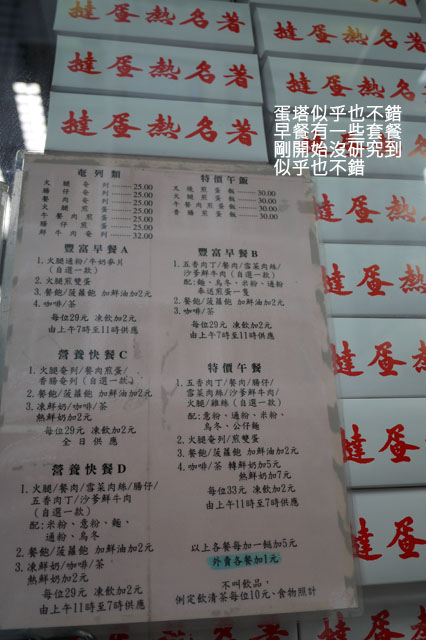 著名熱蛋撻
著名熱蛋撻
著名熱蛋撻
著名熱蛋撻
著名熱蛋撻
著名熱蛋撻
蛋塔似乎也不錯
早餐有一些套餐
剛開始沒研究到
似乎也不錯
奄列類
火腿奄列 25.00
腸仔奄列 25.00
餐肉奄列 25.00
火腿煎蛋 25.00
午餐肉煎蛋 25.00
腸仔煎蛋 25.00
鮮牛肉奄列 32.00
特價午飯
叉燒煎蛋飯 30.00
火腿煎蛋飯 30.00
午餐肉煎蛋飯 30.00
香腸煎蛋飯 30.00
豐富早餐A
1.火腿通粉/牛奶麥片
(自選一款)
2.火腿煎雙蛋
3.餐飽/菠蘿飽 加鮮油加2元
4.咖啡/茶
每位29元 凍飲加2元
由上午7時至11時供應
豐富早餐B
1.五香肉丁/餐肉/雪菜肉絲/
沙爹鮮牛肉(自選一款)
配:麵、烏冬、米粉、通粉
奉送煎蛋一隻
2.餐飽/菠蘿飽 加鮮油加2元
3.咖啡/茶
每位29元 凍飲加2元
由上午7時至11時供應
營養快餐C
1.火腿奄列/餐肉煎蛋/
香腸奄列(自選一款)
2.餐飽/菠蘿飽 加鮮油加2元
3.凍鮮奶/咖啡/茶
熱鮮奶加2元
每位29元 凍飲加2元
全日供應
特價午餐
1.五香肉丁/餐肉/腸仔/
雪菜肉絲/沙爹鮮牛肉/
火腿/雞絲(自選一款)
配:意粉、通粉、米粉、
烏冬、公仔麵
2.火腿奄列/煎雙蛋
3.餐飽/菠蘿飽 加鮮油加2元
4.咖啡/茶 轉鮮奶加5元
熱鮮奶加7元
每位33元 凍飲加2元
由上午11時至7時供應
營養快餐D
1.火腿/餐肉/雪菜肉絲/腸仔/
五香肉丁/沙爹鮮牛肉
(自選一款)
配:米粉、意粉、麵、
通粉、烏冬
2.餐飽/菠蘿飽 加鮮油加2元
3.凍鮮奶/咖啡/茶
熱鮮奶加2元
每位29元 凍飲加2元
由上午11時至7時供應
以上各餐每加一餸加5元
外賣各餐加1元
不叫飲品,
例定飲清茶每位10元、食物照計